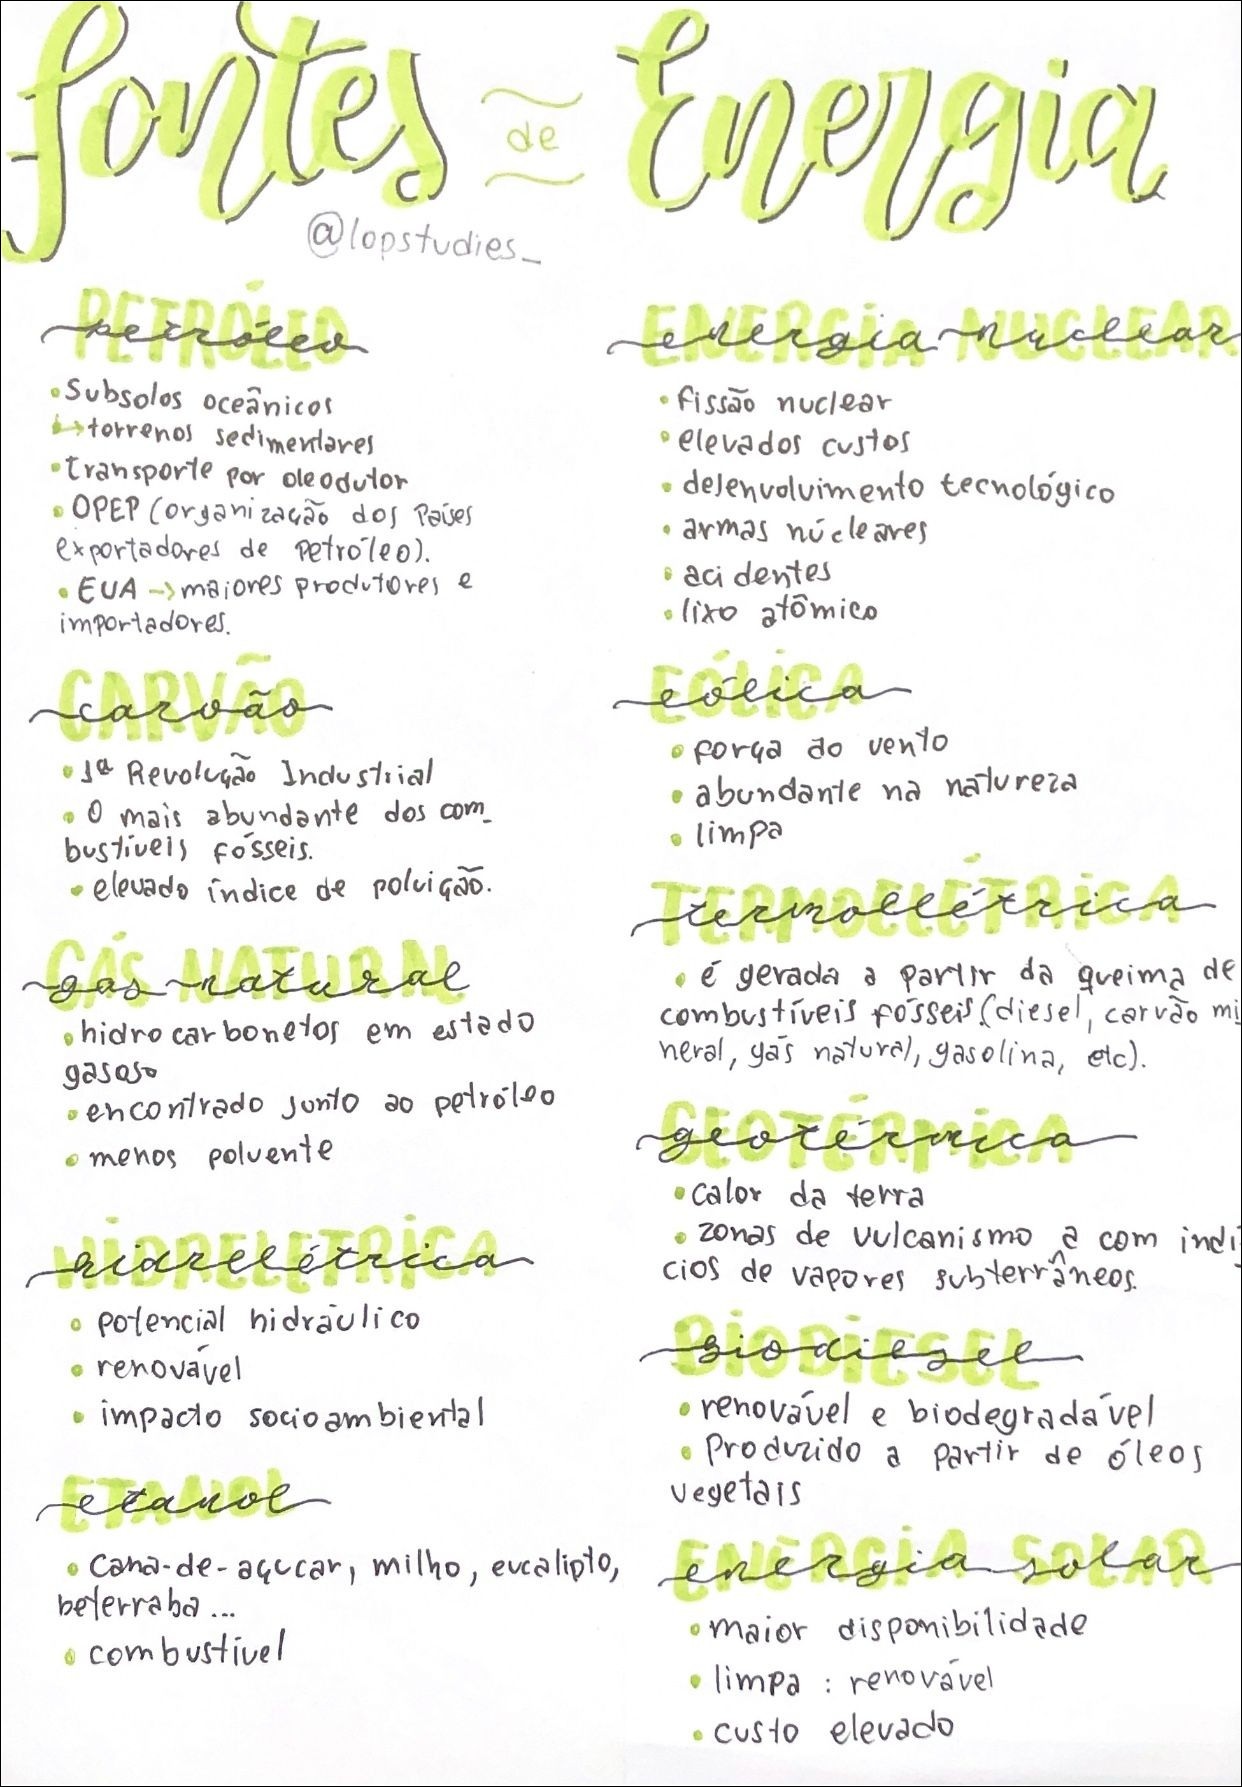 fontes de Energia
@lopstudies_
PETRÓLEO
petróleo
•Subsolos oceânicos
↳torrenos sedimentares
•transporte por oleodutor
•OPEP (organização dos Países
exportadores de Petróleo).
•EUA →maiores produtores e
importadores.
CARVÃO
carvão
•1ª Revolução Industrial
•O mais abundante dos com_
bustíveis fósseis.
•elevado índice de poluição.
GÁS NATURAL
gas natural
•hidrocarbonetos em estado
gasoso
•encontrado junto ao petróleo
•menos poluente
HIDRELETRICA
hidrelétrica
•potencial hidráulico
•renovável
•impacto socioambiental
ETANOL
etanol
•Cana-de-açucar, milho, eucalipto,
beterraba...
•combustível
ENERGIA NUCLEAR
energia nuclear
•fissão nuclear
•elevados custos
•desenvolvimento tecnológico
•armas núcleares
•acidentes
•lixo atômico
EÓLICA
eólica
•força do vento
•abundante na natureza
•limpa
TERMOELÉTRICA
termoelétrica
•é gerada a partir da queima de
combustíveis fósseis.(diesel, carvão mi
neral, gás natural, gasolina, etc).
GEOTÉRMICA
geotérmica
•calor da terra
•zonas de vulcanismo e com indí
cios de vapores subterrâneos.
BIODIESEL
biodiesel
•renovável e biodegradável
•Produzido a partir de óleos
vegetais
ENERGIA SOLAR
energia solar
•maior disponibilidade
•limpa : renovável
•custo elevado